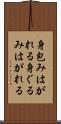 身包みはが
れる身ぐる
みはがれる